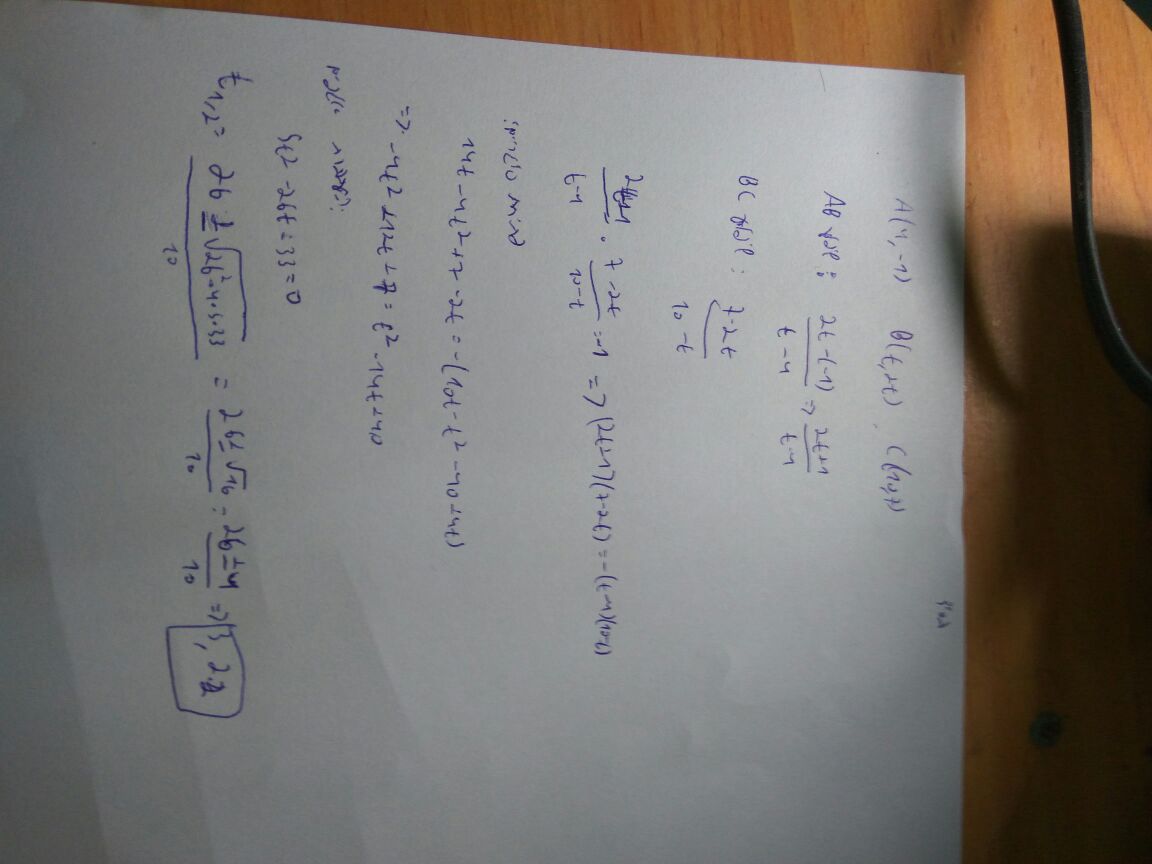 A(4,-1) B(t,2t) C(10,7)
AB שיפוע: \frac{2t-(-1)}{t-4} => \frac{2t+1}{t-4}
BC שיפוע: \frac{7-2t}{10-t}
\frac{2t+1}{t-4} · \frac{7-2t}{10-t} = -1 => (2t+1)(7-2t) = -(t-4)(10-t)
14t-4t²+7-2t = -(10t-t²-40+4t)
=> -4t²+12t+7 = t²-14t+40
5t²-26t+33=0
t_{1,2} = \frac{26±√26²-4·5·33}{10} = \frac{26±√16}{10} = \frac{26±4}{10} => 3, 2.2